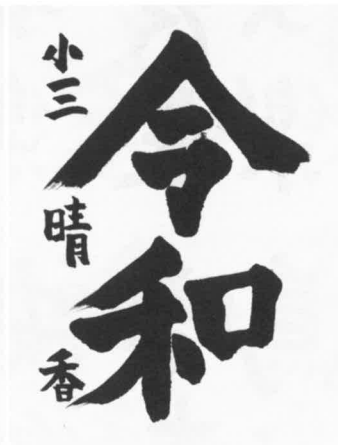 令和
小三 晴香